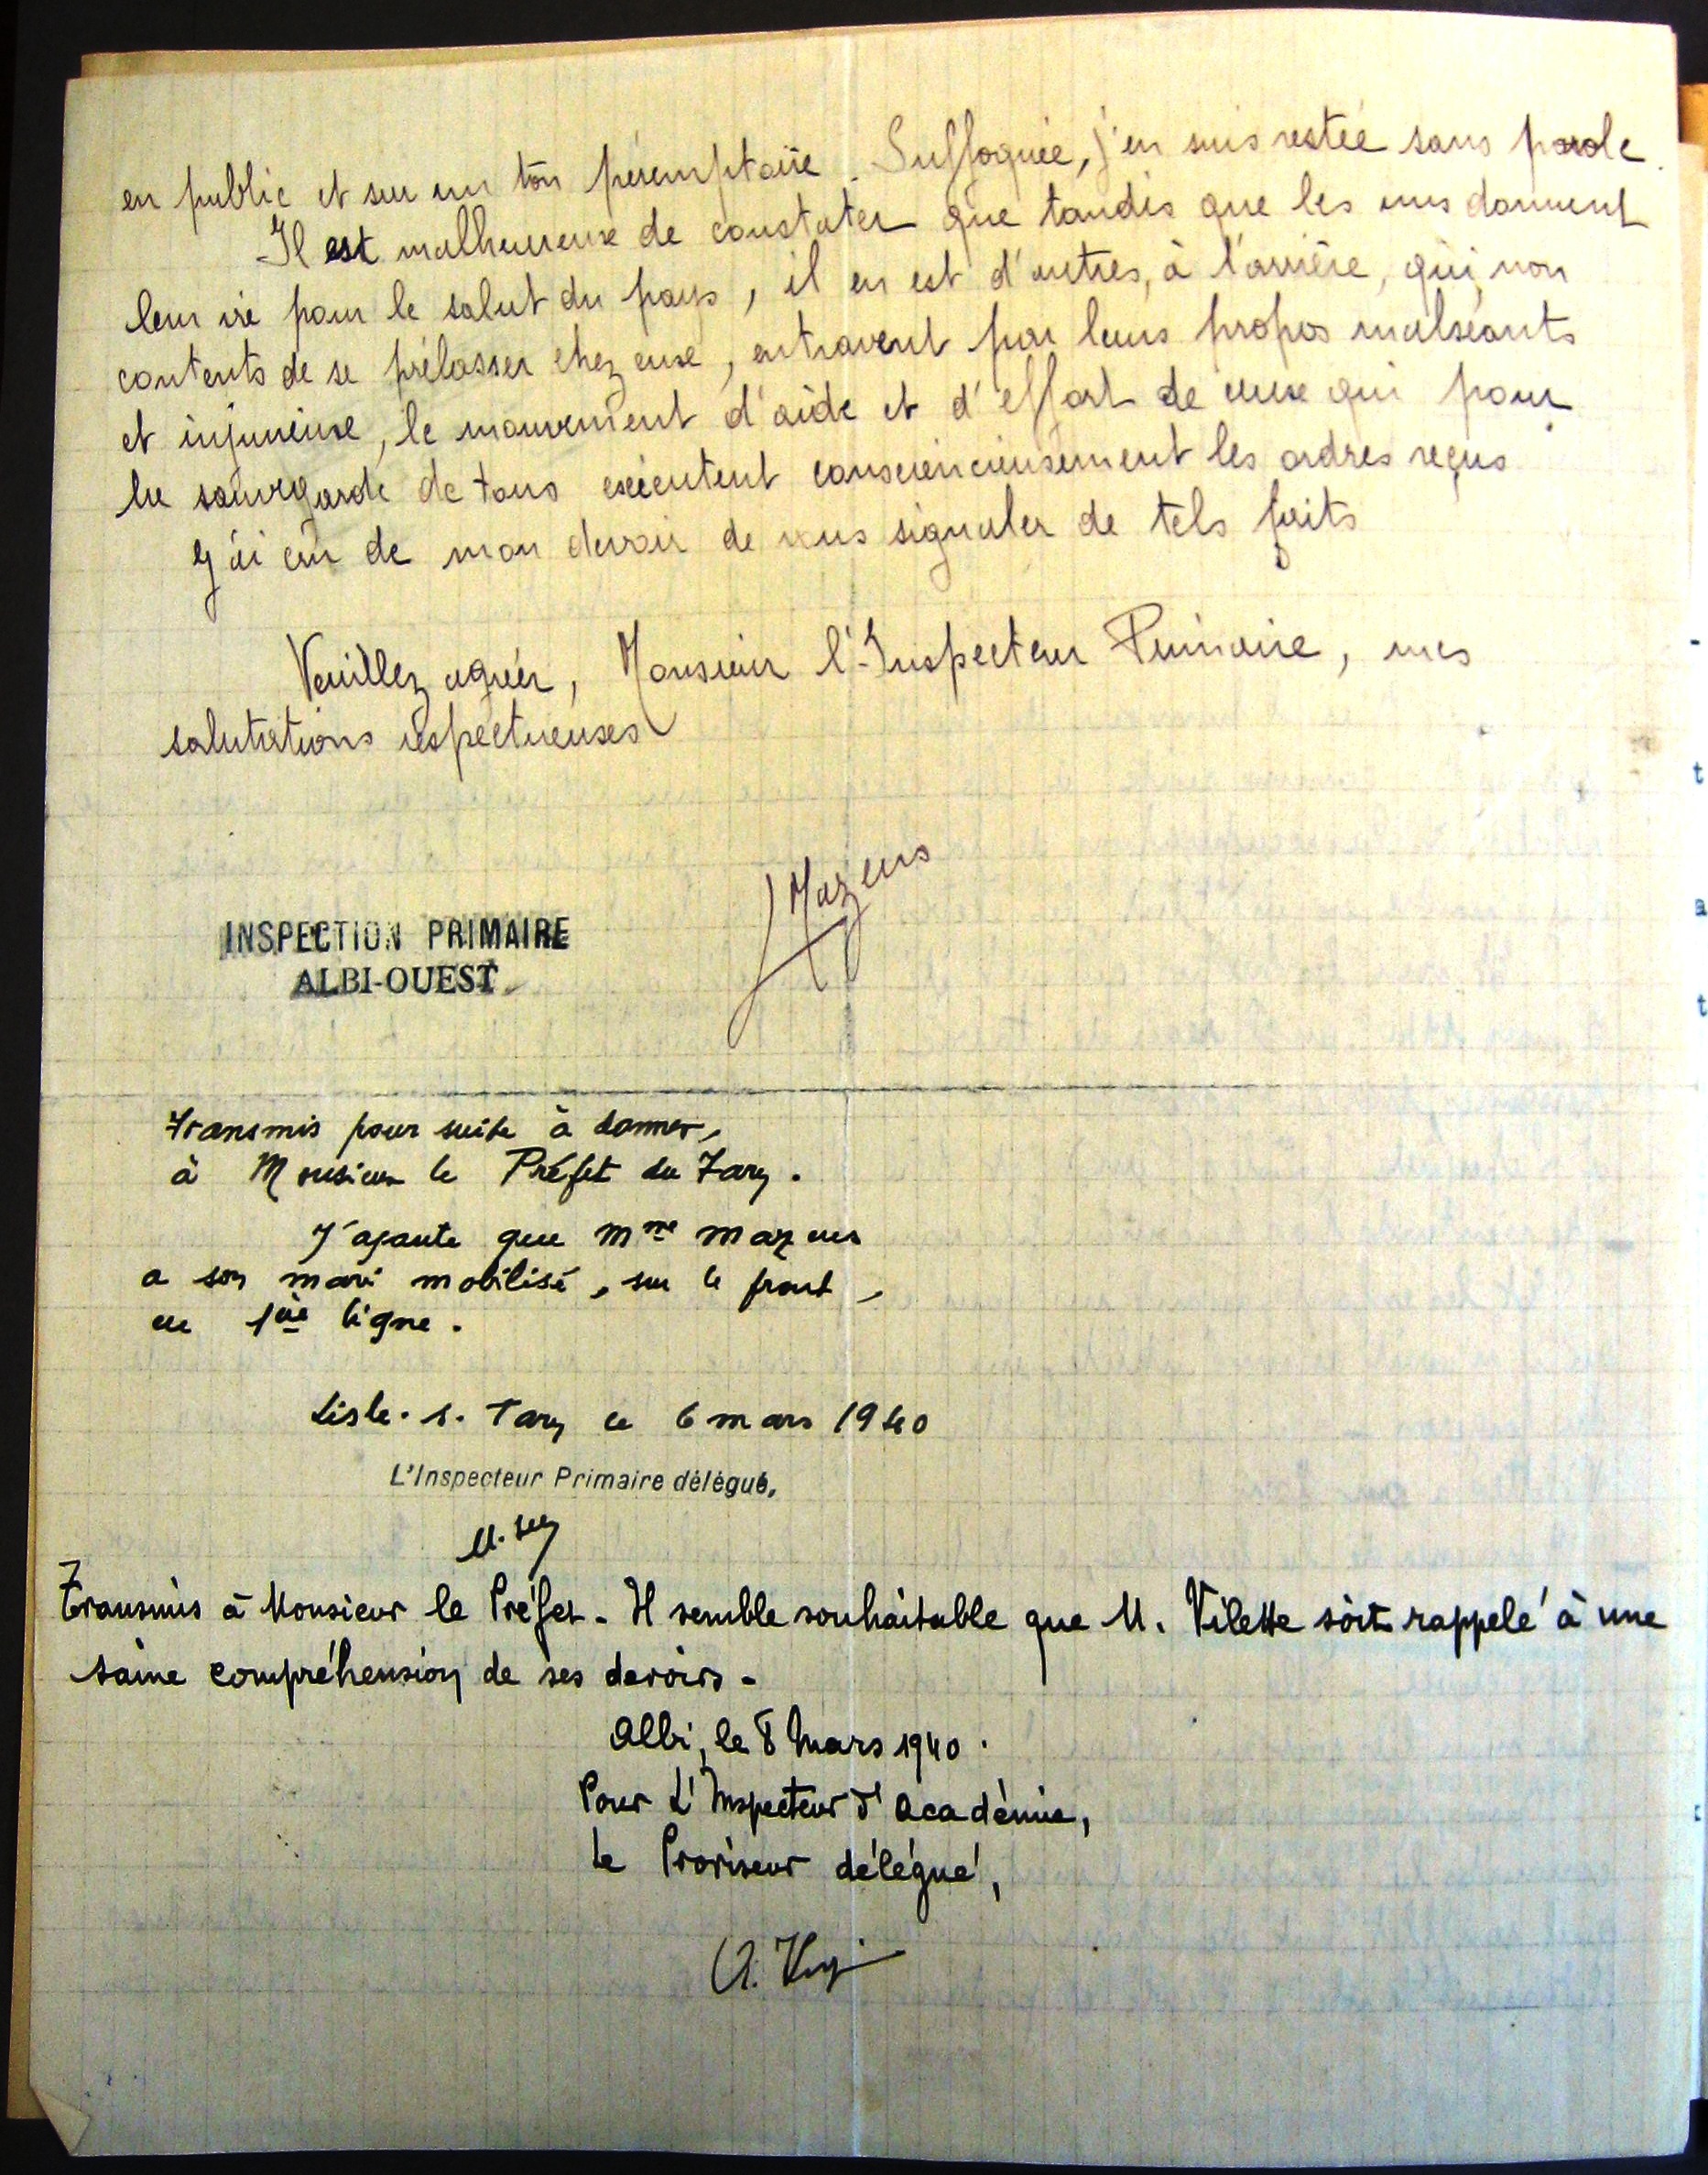 en public et sur un ton péremptoire. Suffoquée, j'en suis restée sans parole.
Il est malheureux de constater que tandis que les uns donnent
leur vie pour le salut du pays, il en est d'autres, à l'arrière, qui, non
contents de se prélasser chez eux, entravent par leurs propos malséants
et injurieux, le mouvement d'aide et d'effort de ceux qui pour
la sauvegarde de tous exécutent consciencieusement les ordres reçus
J'ai cru de mon devoir de vous signaler de tels faits
Veuillez agréer, Monsieur l'Inspecteur Primaire, mes
salutations respectueuses
Mazens
INSPECTION PRIMAIRE
ALBI-OUEST
Transmis pour suite à donner,
à Monsieur le Préfet du Tarn.
J'ajoute que Mme Mazens
a son mari mobilisé, sur le front,
en 1ère ligne.
Lisle-s-Tarn ce 6 mars 1940
L'Inspecteur Primaire délégué,
Transmis à Monsieur le Préfet - Il semble souhaitable que M. Vilette soit rappelé à une
saine compréhension de ses devoirs -
Albi, le 8 Mars 1940.
Pour L'Inspecteur d'Académie,
Le Proviseur délégué,